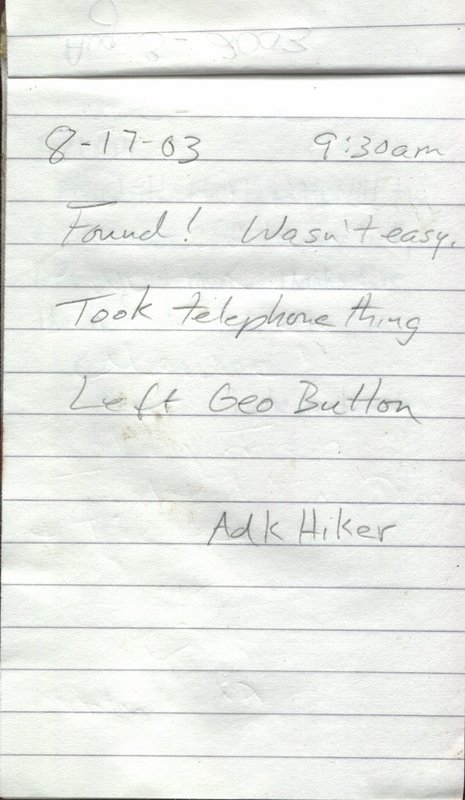 8-17-03 9:30am
Found! Wasn't easy.
Took telephone thing
Left Geo Button
Adk Hiker